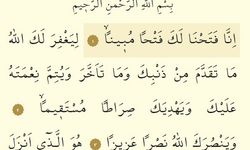 بِسْمِ اللّٰهِ الرَّحْمٰنِ الرَّحِيمِ
اِنَّا فَتَحْنَا لَكَ فَتْحًا مُبِينًاۙ ﴿١﴾ لِيَغْفِرَ لَكَ اللّٰهُ
مَا تَقَدَّمَ مِنْ ذَنْبِكَ وَمَا تَاَخَّرَ وَيُتِمَّ نِعْمَتَهُ
عَلَيْكَ وَيَهْدِيَكَ صِرَاطًا مُسْتَقِيمًاۙ ﴿٢﴾
وَيَنْصُرَكَ اللّٰهُ نَصْرًا عَزِيزًا ﴿٣﴾ هُوَ الَّذٖٓي اَنْزَلَ